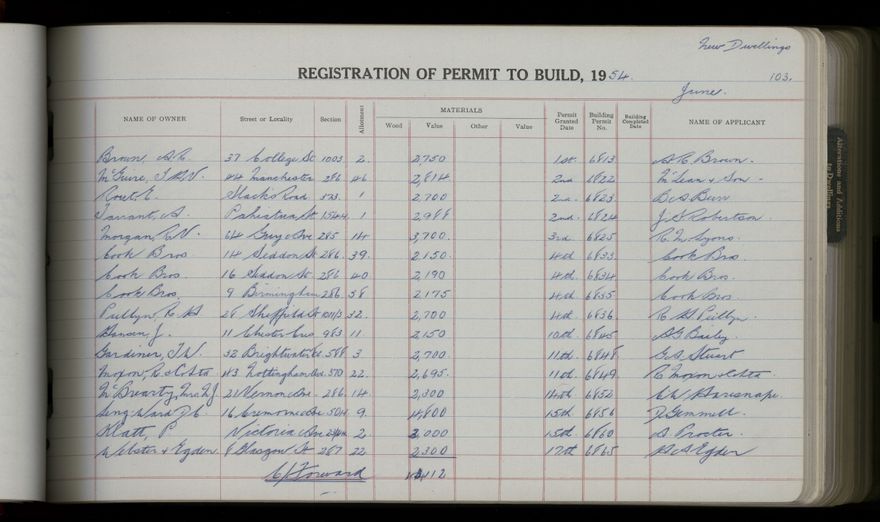 New Dwellings
REGISTRATION OF PERMIT TO BUILD, 1954.
103.
June.
NAME OF OWNER Street or Locality Section Allotment MATERIALS Wood Value Other Value Permit Granted Date Building Permit No. Building Completed Date NAME OF APPLICANT
Brown, A.C. 37 College St 1003 2. 2,750 1st 6813 A.C. Brown.
McGuire, 44 Manchester 286 46 2,814 2nd 1822 McLean & Son -
Rout E. Slacks Road 1 2,700 2nd. 6823
Tarrant, A. Pahiatua St. 1544 1 2,988 2nd. 6824 J.S. Robertson.
Morgan, 64 Grey Ave 285 3,700. 3rd. 6825 Lyons.
Cook Bros 14 Seddon St 286 39. 2,150. 4th 6833 Cook Bros.
Cook Bros. 16 Seddon St 286 40 2,190 4th. 6834 Cook Bros.
Cook Bros. 9 Birmingham 286 58 2175 4th. 6835 Cook Bros
28 Sheffield St 32. 2,700 4th. 6836
Hansen, J. 11 Chester Cres 983 11 2,150 10th. 6845 Bailey.
Gardiner, 32 Brightwater 588 3 2,700 11th. 6848 Stuart
Moxon, R. & Cotta 43 Nottingham 570 22. 2,695. 11th. 6849 R. Moxon & Cotta
McBrearty, Mrs 21 Vernon Ave. 286. 14. 2,300 14th 6852
16 Cremorne Ave 504 9. 4,800 15th 6856 Gemmell.
Klatt, P. Victoria Ave 2. 2,000 15th. 6860 Procter.
Webster & Egden 8 Glasgow St 287 22 2300 17th 6865 Egden
C/Forward